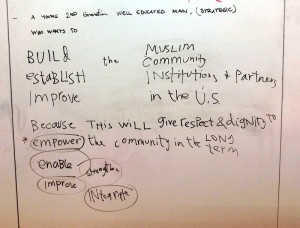 - A YOUNG 2ND Generation WELL EDUCATED MAN, (STRATEGIC)
WHO WANTS TO
BUILd the MUSLIM
establish Community
Improve Institutions & Partners
in the U.S.
Because THIS WILL give respect & dignity to
* empower the community in the LONG term
enable strengthen
improve
INtegrate